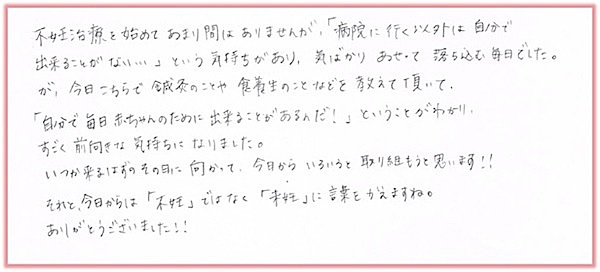 不妊治療を始めてあまり間はありませんが、「病院に行く以外は自分で
出来ることがない…」という気持ちがあり、気ばかりあせって落ち込む毎日でした。
が、今日こちらで鍼灸のことや食養生のことなどを教えて頂いて、
「自分で毎日赤ちゃんのために出来ることがあるんだ！」ということがわかり、
すごく前向きな気持ちになりました。
いつか来るはずのその日に向かって、今日からいろいろと取り組もうと思います!!
それと、今日からは「不妊」ではなく「未妊」に言葉をかえますね。
ありがとうございました!!